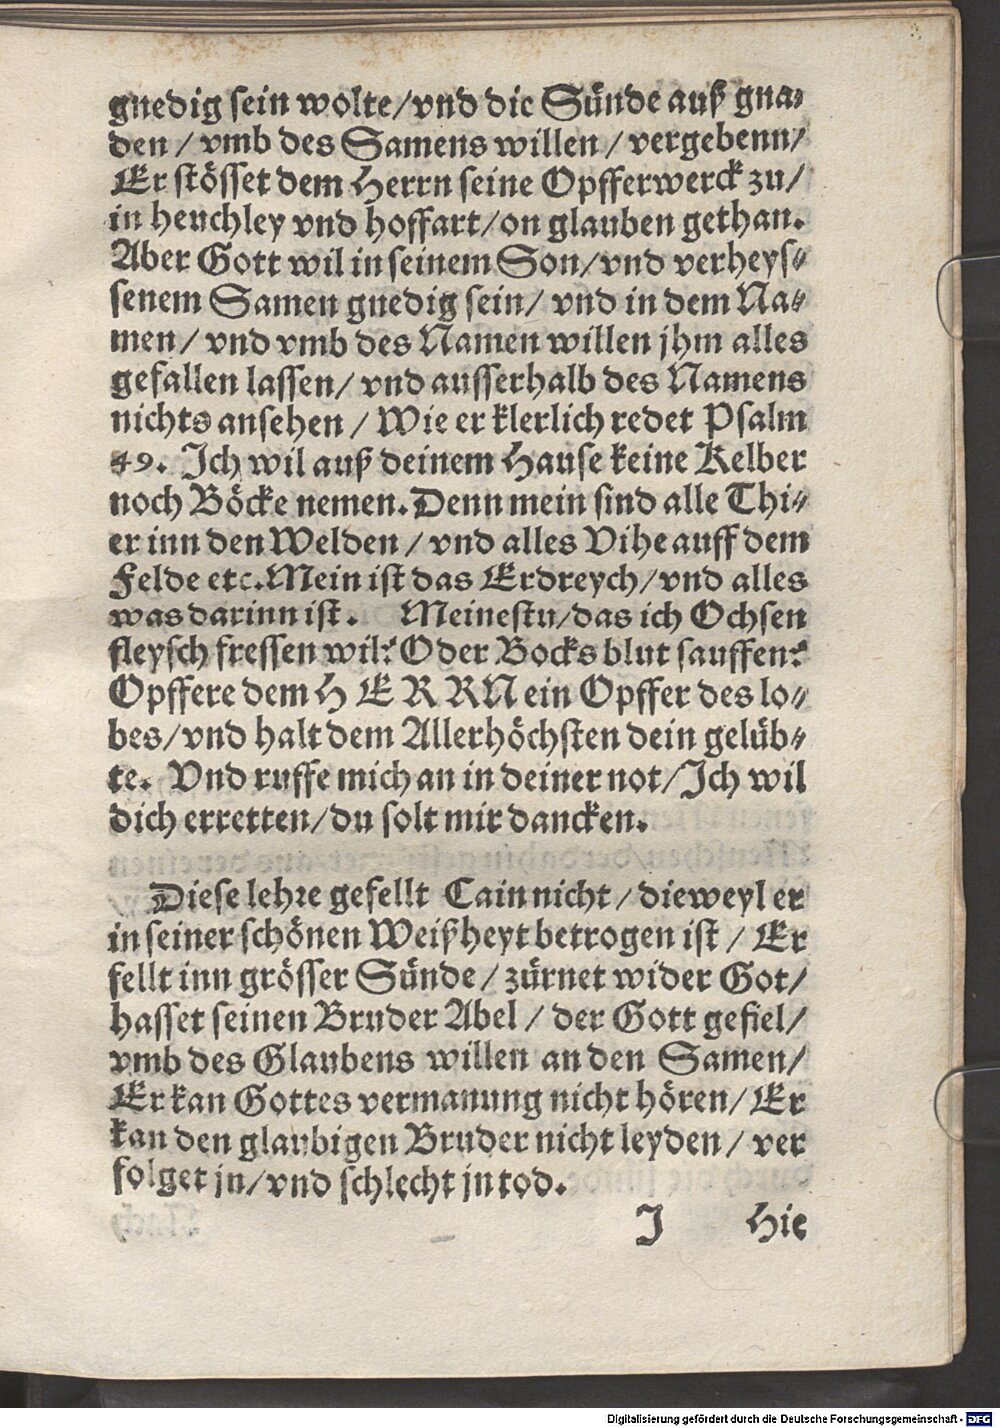 gnedig sein wolte/vnd die Sünde auß gna⸗
den / vmb des Samens willen / vergebenn/
Er stösset dem Herrn seine Opfferwerck zu/
in heuchley vnd hoffart/on glauben gethan.
Aber Gott wil in seinem Son/vnd verheys⸗
senem Samen gnedig sein/ vnd in dem Na⸗
men/ vnd vmb des Namen willen jhm alles
gefallen lassen/ vnd ausserhalb des Namens
nichts ansehen / Wie er klerlich redet Psalm
49. Ich wil auß deinem Hause keine Kelber
noch Böcke nemen. Denn mein sind alle Thi⸗
er inn den Welden / vnd alles Vihe auff dem
Felde etc. Mein ist das Erdreych/vnd alles
was darinn ist. Meinestu/das ich Ochsen
fleysch fressen wil? Oder Bocks blut sauffen?
Opffere dem HERRN ein Opffer des lo⸗
bes/vnd halt dem Allerhöchsten dein gelüb⸗
te. Vnd ruffe mich an in deiner not/Ich wil
dich erretten/du solt mir dancken.
Diese lehre gefellt Cain nicht / dieweyl er
in seiner schönen Weißheyt betrogen ist / Er
fellt inn grösser Sünde / zürnet wider Got/
hasset seinen Bruder Abel / der Gott gefiel/
vmb des Glaubens willen an den Samen/
Er kan Gottes vermanung nicht hören/ Er
kan den glaubigen Bruder nicht leyden / ver
folget jn/vnd schlecht jn tod.
J Hie
Digitalisierung gefördert durch die Deutsche Forschungsgemeinschaft - DFG